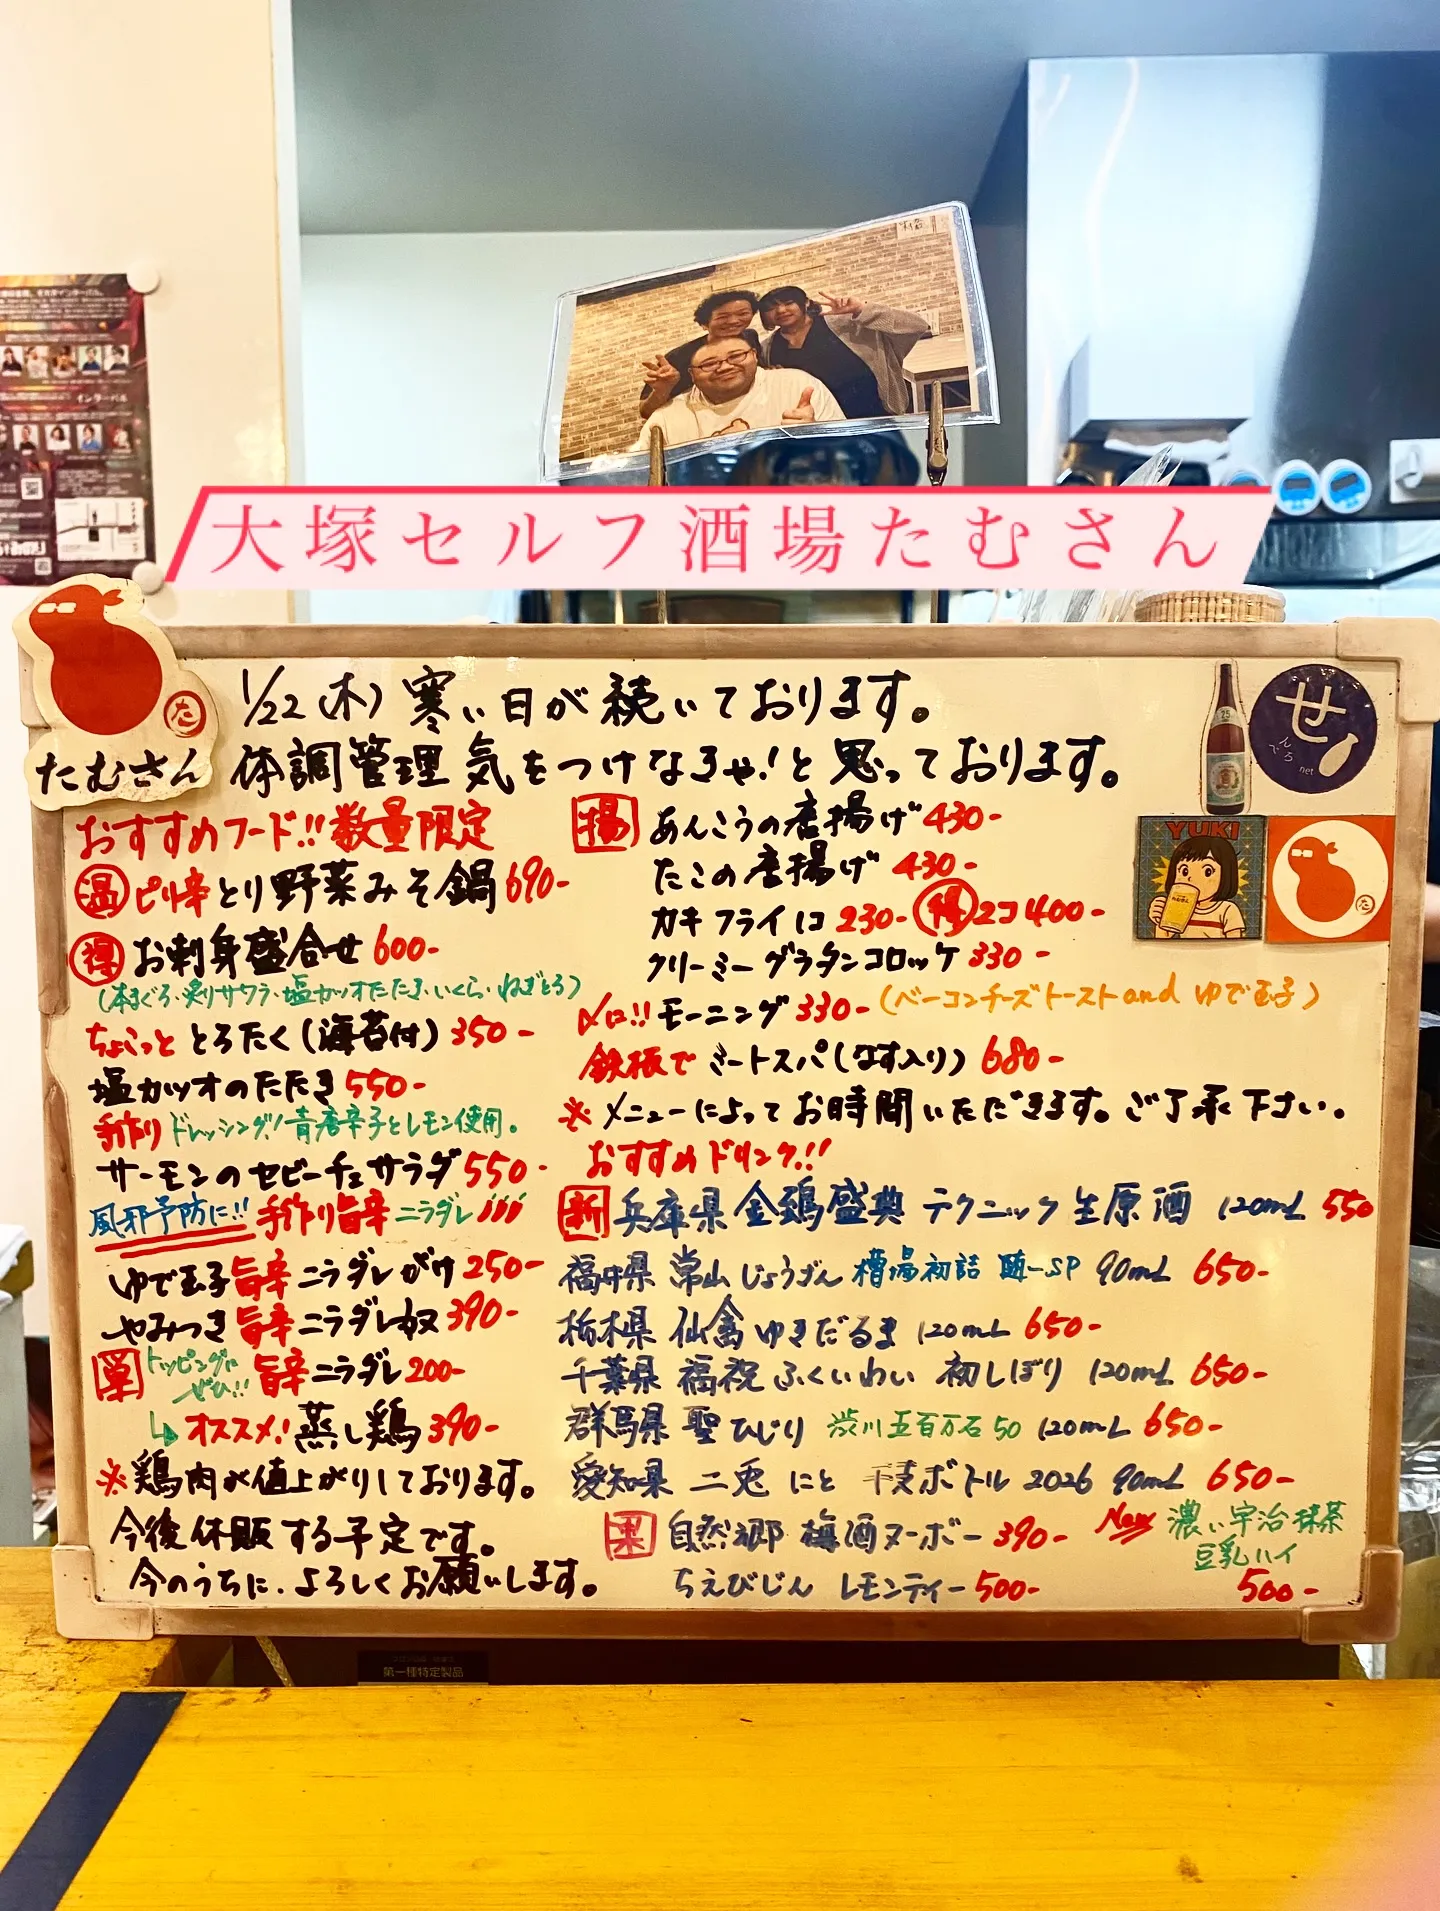 大塚セルフ酒場たむさん
インターバル
たむさん
1/22(木) 寒い日が続いております。
体調管理気をつけなきゃ!と思っております。
せ
んべろ
net
YUKI
おすすめフード!! 数量限定
温 ピリ辛とり野菜みそ鍋 690-
得 お刺身盛合せ 600-
(本まぐろ・炙りサワラ・塩カツオたたき・いくら・ねぎとろ)
ちょこっと とろたく(海苔付) 350-
塩カツオのたたき 550-
手作りドレッシング!青唐辛子とレモン使用。
サーモンのセビーチェサラダ 550-
風邪予防に!! 手作り旨辛ニラダレ!!!
ゆで玉子旨辛ニラダレがけ 250-
やみつき旨辛ニラダレ奴 390-
単 トッピングに ぜひ!! 旨辛ニラダレ 200-
オススメ!蒸し鶏 390-
※鶏肉が値上がりしております。
今後休販する予定です。
今のうちに、よろしくお願いします。
揚 あんこうの唐揚げ 430-
たこの唐揚げ 430-
カキフライ1コ 230- 得 2コ 400-
クリーミーグラタンコロッケ 330-
〆に!! モーニング 330- (ベーコンチーズトーストand ゆで玉子)
鉄板で ミートスパ(なす入り) 680-
※メニューによってお時間いただきます。ご了承下さい。
おすすめドリンク!!
新 兵庫県 金鵄盛典 テクニック 生原酒 120mL 550
福井県 常山 じょうざん 槽場初詰 随一SP 90mL 650-
栃木県 仙禽 ゆきだるま 120mL 650-
千葉県 福祝 ふくいわい 初しぼり 120mL 650-
群馬県 聖 ひじり 渋川五百万石50 120mL 650-
愛知県 二兎 にと 干支ボトル 2026 90mL 650-
果 自然郷 梅酒ヌーボー 390-
ちえびじん レモンティー 500-
New 濃い宇治抹茶
豆乳ハイ
500-
第一種特定製品